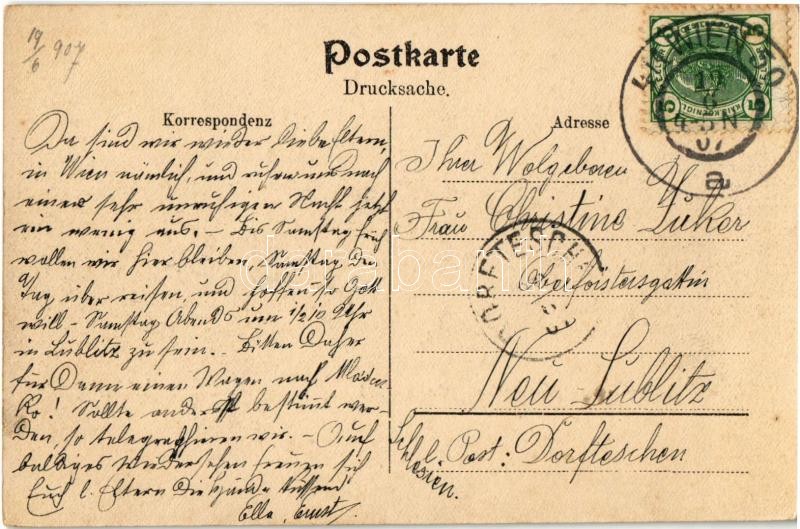 19/6 907
Postkarte
Drucksache.
Korrespondenz
Adresse
Da sind wir wieder liebe Eltern,
in Wien nämlich, und ruhen uns nach
einer sehr unruhigen Nacht jetzt
ein wenig aus. – Bis Samstag früh
wollen wir hier bleiben, Samstag den
Tag über reisen, und hoffen so Gott
will – Samstag Abends um 1/2 10 Uhr
in Lublitz zu sein. – Bitten daher
für Dann einen Wagen nach
! Sollte anders bestimmt wer-
den, so telegraphieren wir. – Auf
baldiges Wiedersehen freuen sich
Euch l. Eltern die Hände küssend
Ella, Ernst.
Ihrer Wolgeboren
Frau Christine
Oberförstersgattin
Neu-Lublitz
l. Post: Dorfteschen
Schlesien.
WIEN 50
19 6
07
a
DORFTESCHEN
5
5
5
5
databank